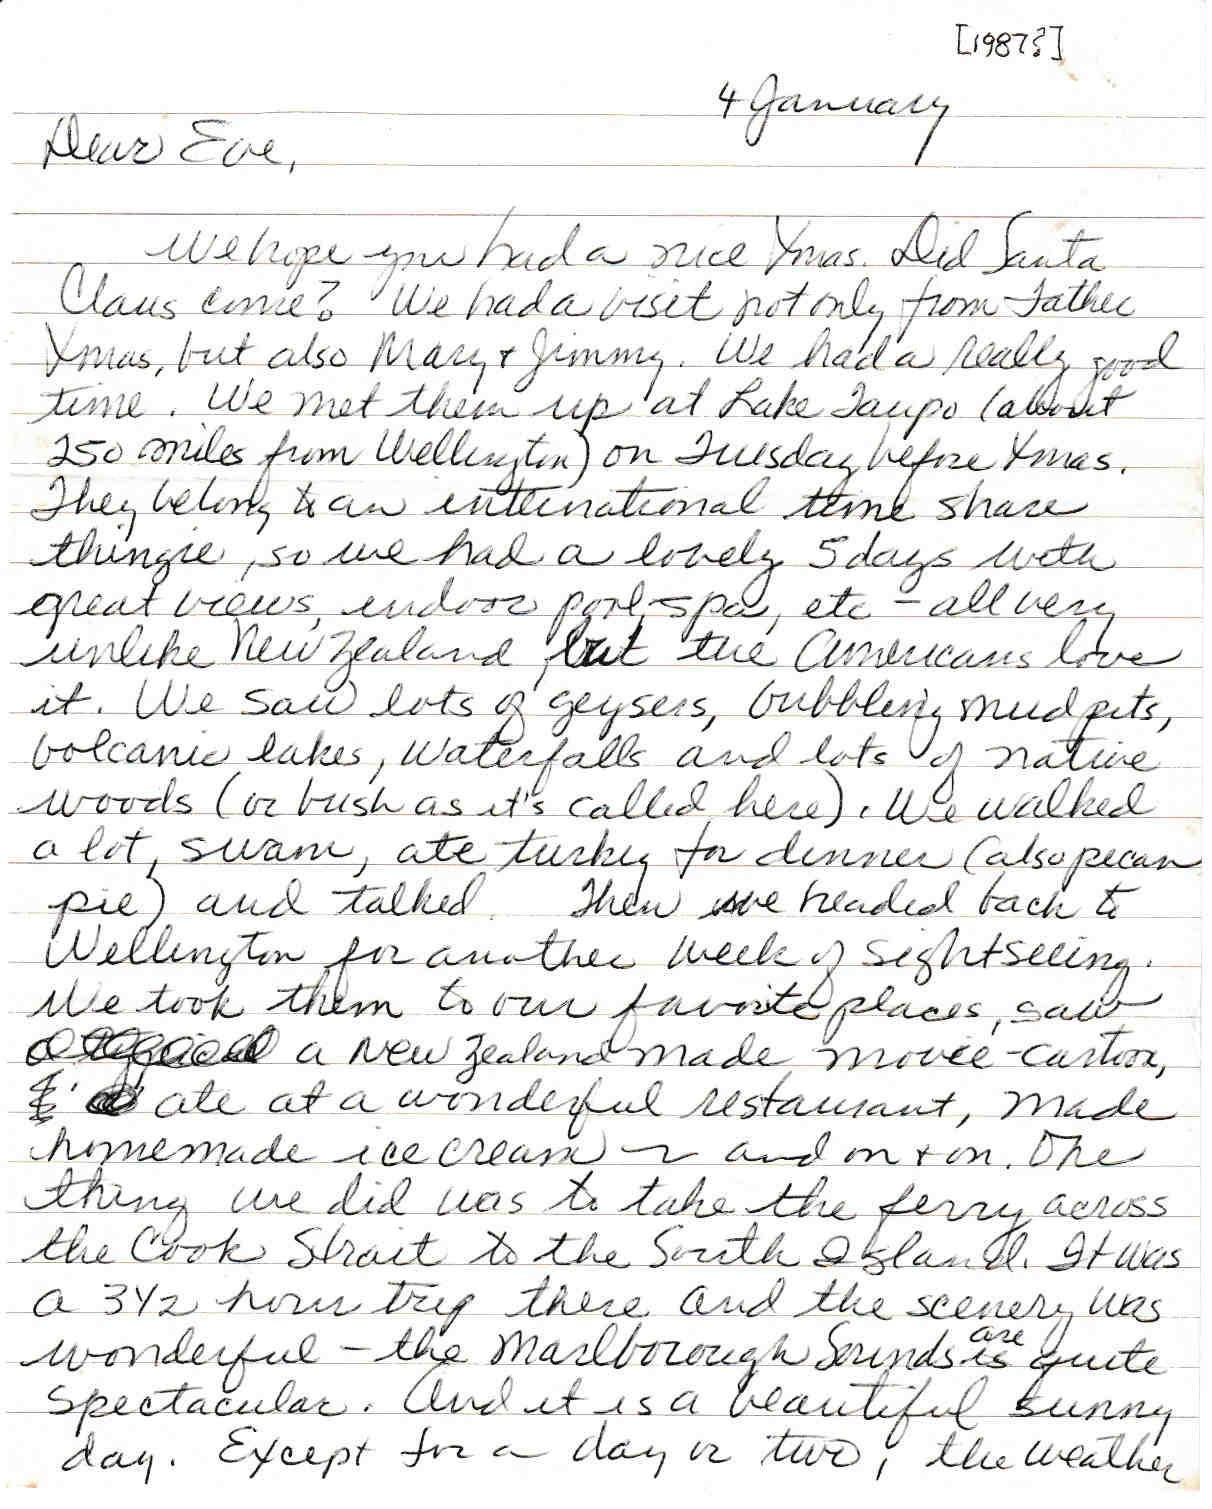 [1987?]
4 January
Dear Eve,
We hope you had a nice Xmas. Did Santa
Claus come? We had a visit not only from Father
Xmas, but also Mary + Jimmy. We had a really good
time. We met them up at Lake Taupo (about
250 miles from Wellington) on Tuesday before Xmas.
They belong to an international time share
thingie, so we had a lovely 5 days with
great views, indoor pool, spa, etc - all very
unlike New Zealand, but the Americans love
it. We saw lots of geysers, bubbling mud pits,
volcanic lakes, waterfalls and lots of native
woods (or bush as it's called here). We walked
a lot, swam, ate turkey for dinner (also pecan
pie) and talked. Then we headed back to
Wellington for another week of sightseeing.
We took them to our favorite places, saw
a New Zealand made movie-cartoon,
ate at a wonderful restaurant, made
homemade ice cream ~ and on + on. One
thing we did was to take the ferry across
the Cook Strait to the South Island. It was
a 3 1/2 hour trip there and the scenery was
wonderful - the Marlborough Sounds are quite
spectacular. And it is a beautiful sunny
day. Except for a day or two, the weather